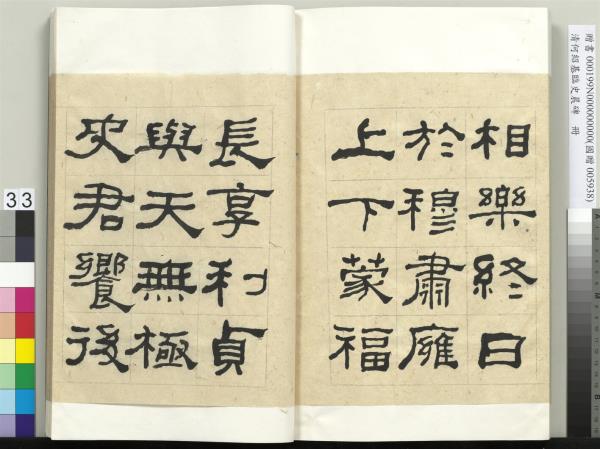 相樂終日
於穆肅廱
上下蒙福
長享利貞
與天無極
史君饗後
贈書 000199N000000000(國贈 005938)
清何紹基臨史晨碑 冊
33